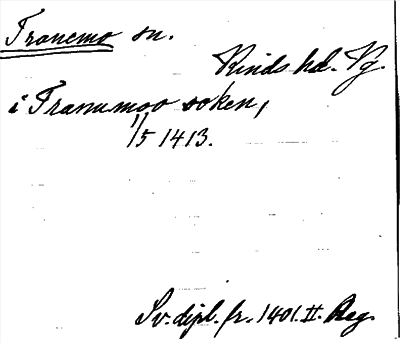 Tranemo sn.
Kinds hd. Vg.
i Tranumoo soken,
1/5 1413.
Sv. dipl. fr. 1401. II. Reg.